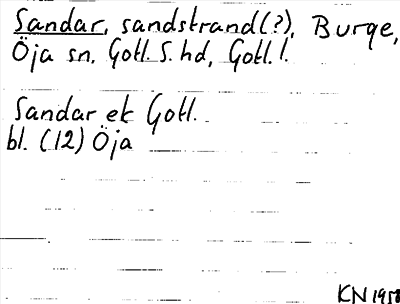 Sandar, sandstrand(?), Burge,
Öja sn, Gotl. S. hd, Gotl. l.
Sandar ek Gotl.
bl. (12) Öja
KN